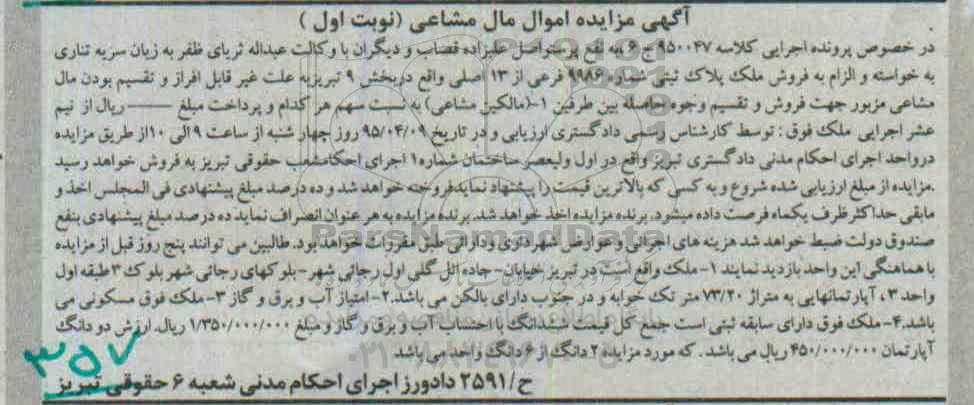 آگهی مزایده اموال مال مشاعی (نوبت اول)
در خصوص پرونده اجرایی کلاسه ۹۵۰۰۴۷ ج ۶ به نفع پرستو اصل علیزاده قصاب و دیگران با وکالت عبداله ثریای ظفر به زیان سریه تناری
به خواسته و الزام به فروش ملک پلاک ثبتی شماره ۹۹۸۶ فرعی از ۱۳ اصلی واقع دربخش ۹ تبریز به علت غیر قابل افراز و تقسیم بودن مال
مشاعی مزبور جهت فروش و تقسیم وجوه حاصله بین طرفین ۱-(مالکین مشاعی) به نسبت سهم هر کدام و پرداخت مبلغ ——— ریال از نیم
عشر اجرایی ملک فوق : توسط کارشناس رسمی دادگستری ارزیابی و در تاریخ ۹۵/۰۴/۰۹ روز چهار شنبه از ساعت ۹ الی ۱۰ از طریق مزایده
درواحد اجرای احکام مدنی دادگستری تبریز واقع در اول ولیعصر ساختمان شماره۱ اجرای احکام شعب حقوقی تبریز به فروش خواهد رسید
.مزایده از مبلغ ارزیابی شده شروع و به کسی که بالاترین قیمت را پیشنهاد نماید فروخته خواهد شد و ده درصد مبلغ پیشنهادی فی المجلس اخذ و
مابقی حداکثر ظرف یکماه فرصت داده میشود. برنده مزایده اخذ خواهد شد. برنده مزایده به هر عنوان انصراف نماید ده درصد مبلغ پیشنهادی بنفع
صندوق دولت ضبط خواهد شد هزینه های اجرائی و عوارض شهرداری ودارائی طبق مقررات خواهد بود. طالبین می توانند پنج روز قبل از مزایده
با هماهنگی این واحد بازدید نمایند ۱- ملک واقع است در تبریز خیابان- جاده ائل گلی اول رجائی شهر - بلوکهای رجائی شهر بلوک ۳ طبقه اول
واحد ۳ ، آپارتمانهایی به متراژ ۷۳/۲۰ متر تک خوابه و در جنوب دارای بالکن می باشد.۲- امتیاز آب و برق و گاز ۳- ملک فوق مسکونی می
باشد.۴- ملک فوق دارای سابقه ثبتی است جمع کل قیمت ششدانگ با احتساب آب و برق و گاز و مبلغ ۱/۳۵۰/۰۰۰/۰۰۰ ریال. ارزش دو دانگ
آپارتمان ۴۵۰/۰۰۰/۰۰۰ ریال می باشد . که مورد مزایده ۲ دانگ از ۶ دانگ واحد می باشد
ح/۲۵۹۱ دادورز اجرای احکام مدنی شعبه ۶ حقوقی تبریز
ParsNamadData